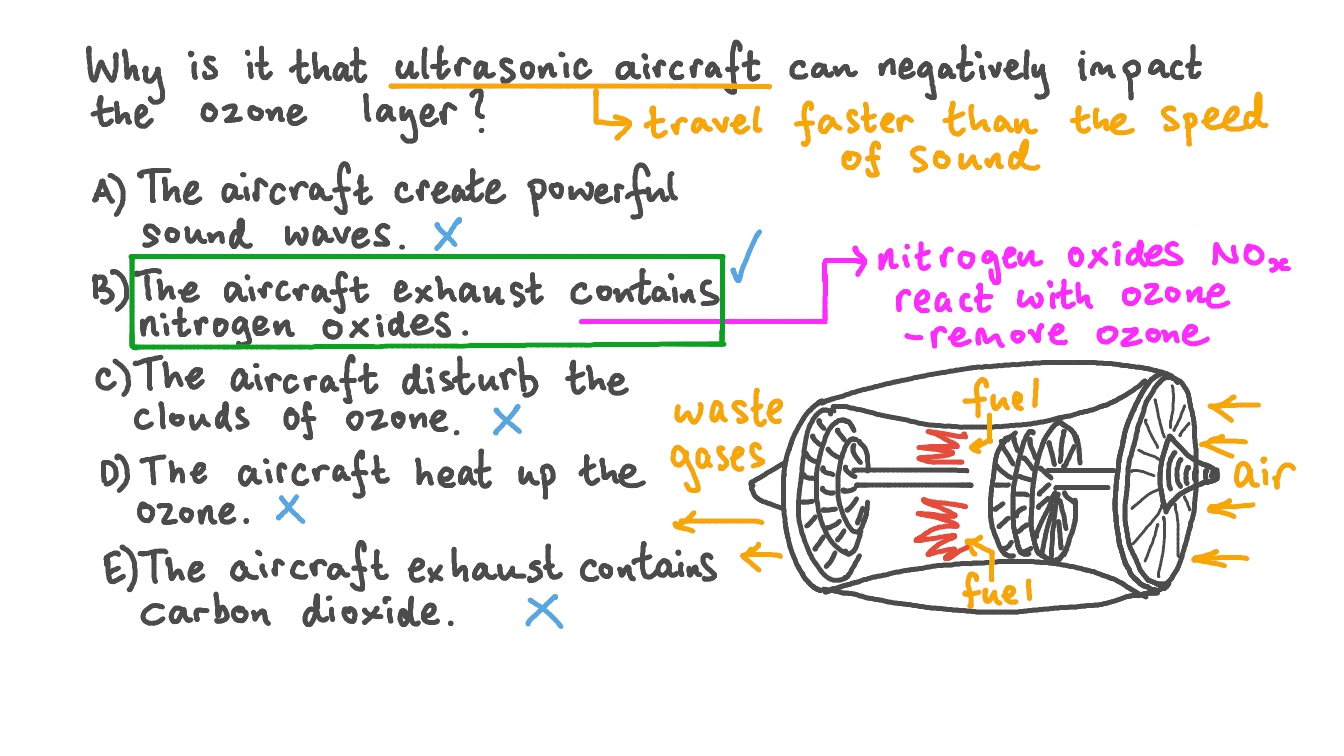 Why is it that ultrasonic aircraft can negatively impact
the ozone layer?
travel faster than the speed
of sound
A) The aircraft create powerful
sound waves.
B) The aircraft exhaust contains
nitrogen oxides.
nitrogen oxides NOx
react with ozone
-remove ozone
C) The aircraft disturb the
clouds of ozone.
D) The aircraft heat up the
ozone.
E) The aircraft exhaust contains
carbon dioxide.
waste
gases
fuel
air
fuel